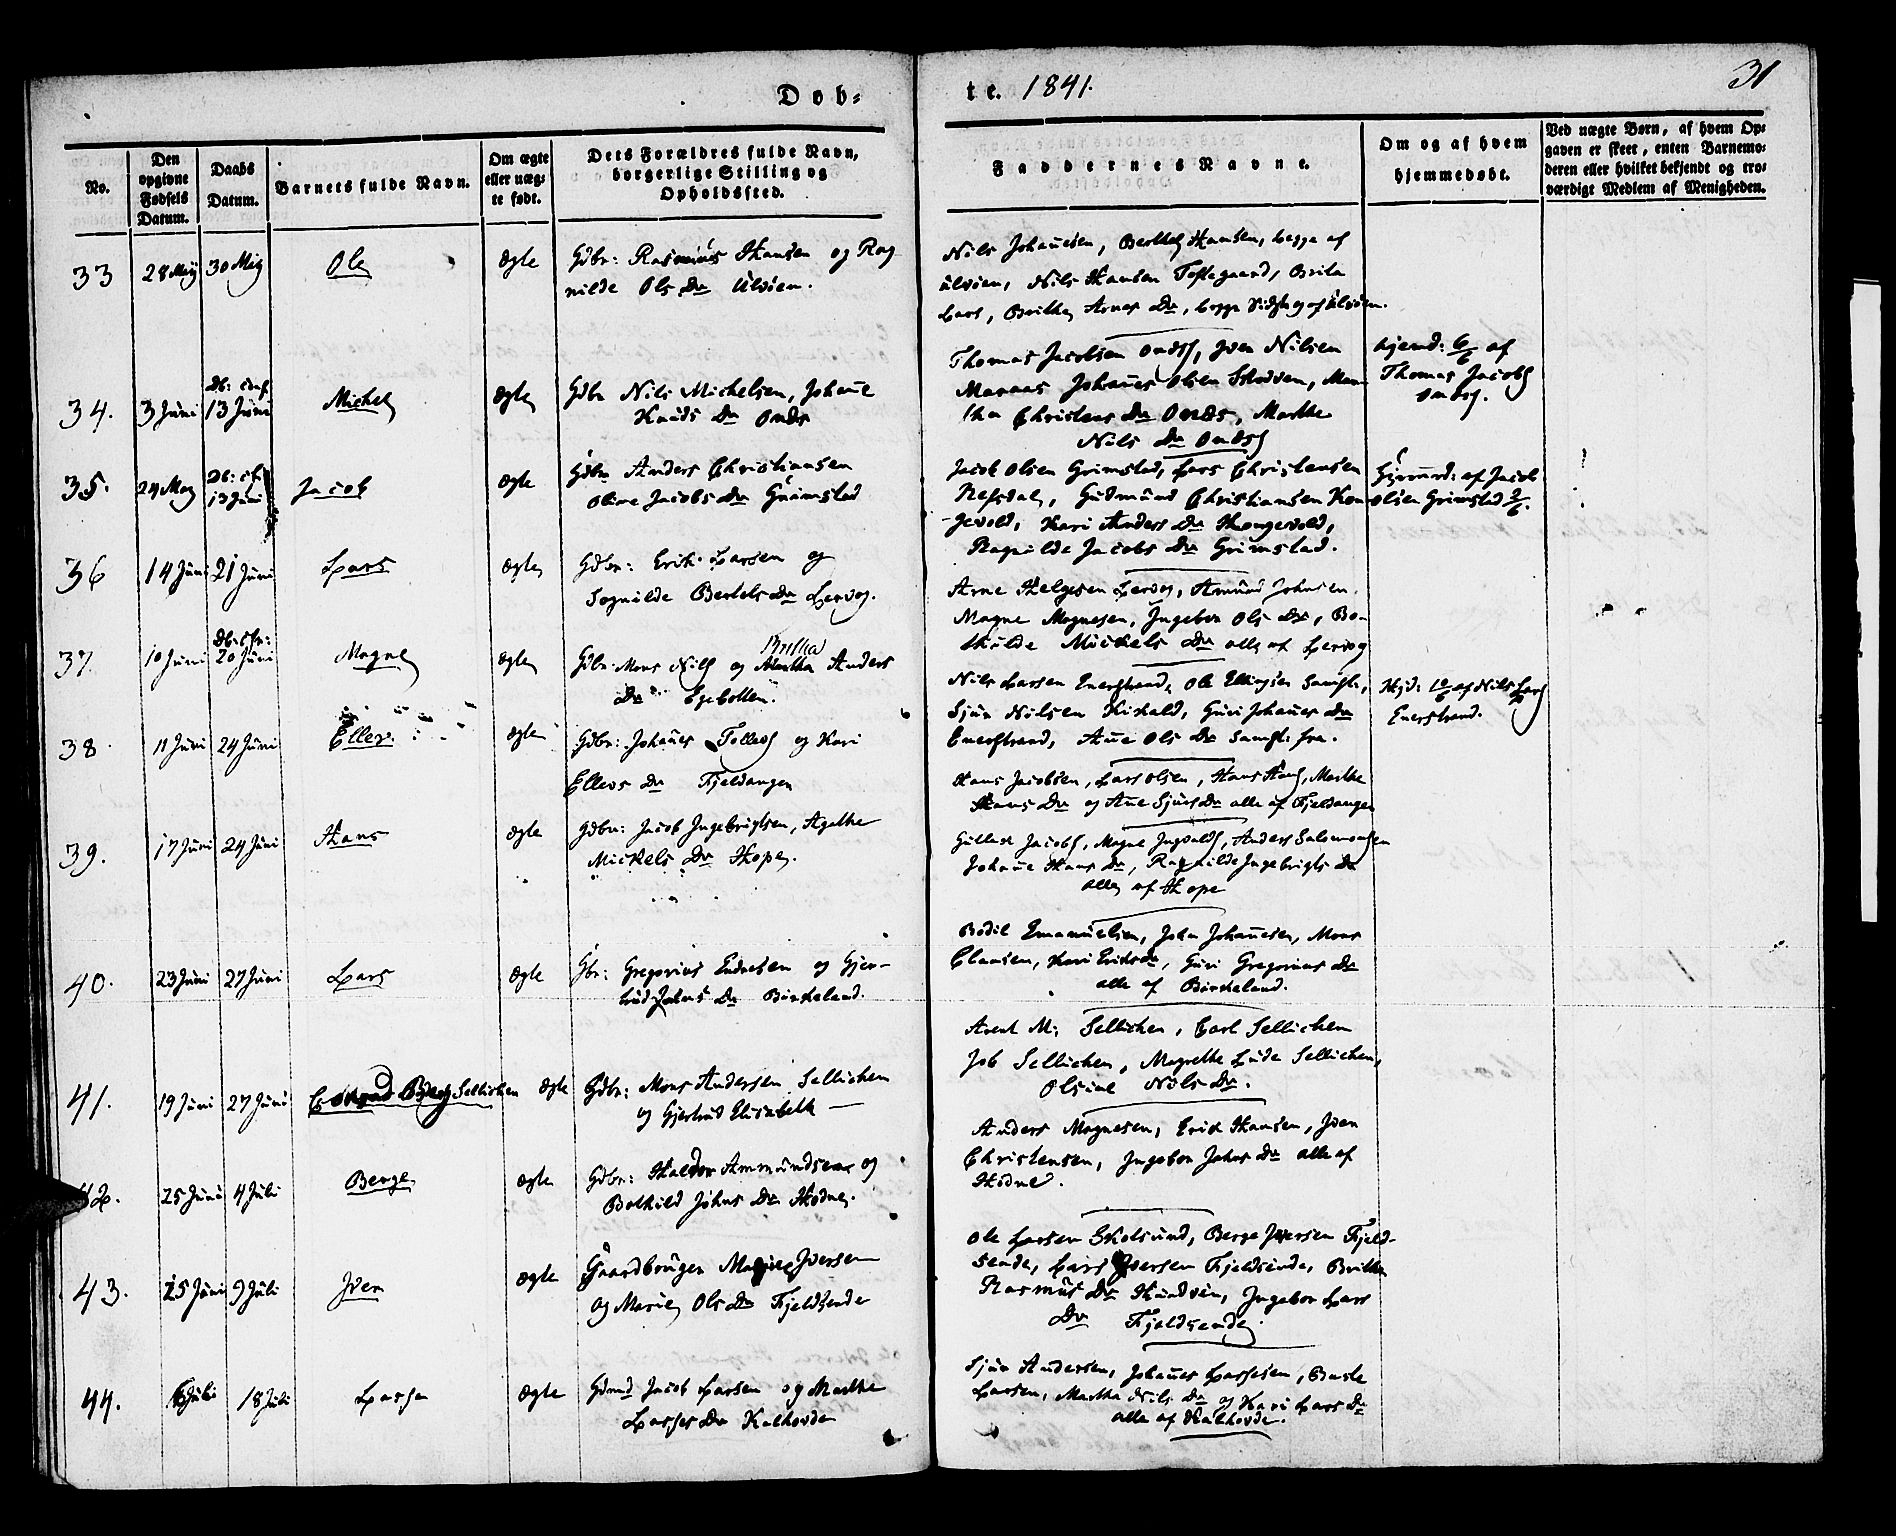 Døb-
te. 1841.
31
No.
Den
opgivne
Fødsels
Datum.
Daabs
Datum.
Barnets fulde Navn.
Om ægte
eller uæg-
te født.
Dets Forældres fulde Navn,
borgerlige Stilling og
Opholdssted.
Faddernes Navne.
Om og af hvem
hjemmedøbt.
Ved uægte Børn, af hvem Op-
gaven er skeet, enten Barnemo-
deren eller hvilket bekjendt og tro-
værdigt Medlem af Menigheden.
33
28 Maj
30 Maj
Ole
Ægte
Gdbr: Rasmus Hansen og Rag
nilde Ols Dr Ulvøen.
Nils Johannesen, Berthel Hansen, begge af
Ulvøen, Nils Hansen Toftegaard, Brita
Lars, Brithe Arnes Dr, begge
34.
3 Juni
Db: conf
13 Juni
Michel
Ægte
Gdbr Nils Michelsen, Johanne
Knuds Dr Onds
Thomas Jacobsen Ondsf, Iver Nilsen
Maraas Johannes Olsen Skodven, Mar-
tha Christens Dr Onds, Marthe
Nils Dr Ondsf
hjemd: 6/6 af
Thomas Jacobs
Ondsf.
35.
24 Maj
Db: cf
13 Juni
Jacob
Ægte
Gdbr Anders Christiansen
Oline Jacobs Dr Grimstad
Jacob Olsen Grimstad, Lars Christensen
Refsdal, Gudmund Christiansen Kon-
gevold, Kari Anders Dr Kongevold,
Ragnilde Jacobs Dr Grimstad.
af Jacob
Olsen Grimstad 2/6.
36
14 Juni
21 Juni
Lars
Ægte
Gdbr: Erik Larsen og
Sognilde Bertels Dr Lervog.
Arne Helgesen Lervog, Amund Johnsen,
Magne Magnesen, Ingebor Ols Dr, Bo-
thilde Mickels Dr alle af Lervog
37.
10 Juni
Db: cfn:
20 Juni
Magne
Ægte
Gdbr: Mons Nils og Britha Anders
Dr Egebotten.
Nils Larsen Enerstrand, Ole Ellingsen Samfl:,
Sjur Nilsen Kirkald, Guri Johannes Dr
Enerstrand, Anne Ols Dr Samfl: fra.
Hjd: 10/6 af Nils Lars
Enerstrand.
38
11 Juni
24 Juni
Ellev.
Ægte
Gdbr: Johannes Tollevs og Kari
Ellevs Dr Fjeldanger
Hans Jacobsen, Lars Olsen, Hans Hans, Marthe
Hans Dr og Anne Sjurs Dr alle af Fjeldanger
39.
17 Juni
24 Juni
Hans
Ægte
Gdbr: Jacob Ingebrigtsen, Agathe
Mickels Dr Hope.
Jacobs, Magne Ingvalds, Anders Salomonsen
Johanne Hans Dr, Ragnilde Ingebrigts Dr
alle af Hope
40.
23 Juni
27 Juni
Lars
Ægte
Gbr: Gregorius Endresen og Gjer-
trud Johns Dr Birkeland.
Bodil Emanuelsen, John Johannesen, Mons
Clausen, Kari Eriks Dr, Guri Gregorius Dr
alle af Birkeland.
41.
19 Juni
27 Juni
Conrad Berg Sellichen
Ægte
Gdbr: Mons Andersen Sellichen
og Gjertrud Elisabeth —
Arent M: Sellichen, Carl Sellichen
Job Sellichen, Magrethe Sellichen,
Olsine Nils Dr.
42.
25 Juni
4 Juli
Berge
Ægte
Gdbr: Haldor Ammundsen og
Bothild Johns Dr Hodne.
Anders Magnesen, Erik Hansen, Iver
Christensen, Ingebor Johns Dr alle af
Hodne.
43.
25 Juni
9 Juli
Iver
Ægte
Gaardbruger Iversen
og Marie Ols Dr Fjeldsende
Ole Larsen Eholsund, Berge Iversen Fjeld-
sende, Lars Iversen Fjeldsende, Brithe
Rasmus Dr Hundven, Ingebor Lars
Dr Fjeldsende.
44.
6 Juli
18 Juli
Lasse
Ægte
Gdmd Jacob Larsen og Marthe
Lasses Dr Kalhovde
Sjur Andersen, Johannes Lassesen,
Larsen, Martha Nils Dr og Kari Lars Dr
alle af Kalhovde.